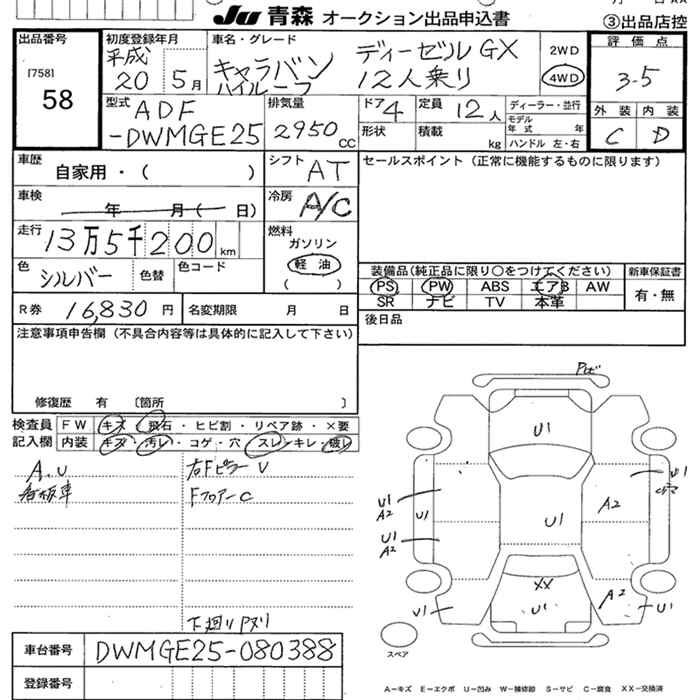 Ju 青森 オークション出品申込書
③出品店控
出品番号
[758]
58
初度登録年月
平成
20 5月
車名・グレード
キャラバン ディーゼルGX
ハイルーフ 12人乗り
2WD
4WD
評価点
3-5
外装 内装
C D
型式
ADF
-DWMGE25
排気量
2950 CC
ドア 4
定員 12人
ディーラー・並行
形状
積載 kg
モデル
年式 年
ハンドル 左・右
車歴
自家用・( )
シフト AT
セールスポイント(正常に機能するものに限ります)
車検
年 月( 日)
冷房 A/C
走行
13万5千200km
燃料
ガソリン
軽油
( )
色
シルバー
色替
色コード
装備品(純正品に限り○をつけてください)
新車保証書
PS PW ABS エアB AW
SR ナビ TV 本革
有・無
R券 16,830円
名変期限 月 日
後日品
注意事項申告欄(不具合内容等は具体的に記入して下さい)
修復歴 有 〔箇所 〕
検査員
記入欄
FW キズ・飛石・ヒビ割・リペア跡・×要
内装 キズ・汚レ・コゲ・穴・スレ・キレ・破レ
A.U
看板車
右Fピラー V
Fフロアー C
下廻りPヌリ
Pセビ
U1
U1
A2
U1
A2
U1
U1
A2
U1
U1
XX
U1
U1
A2
U1
スペア
車台番号 DWMGE25-080388
登録番号
A-キズ E-エクボ U-凹み W-補修跡 S-サビ C-腐食 XX-交換済